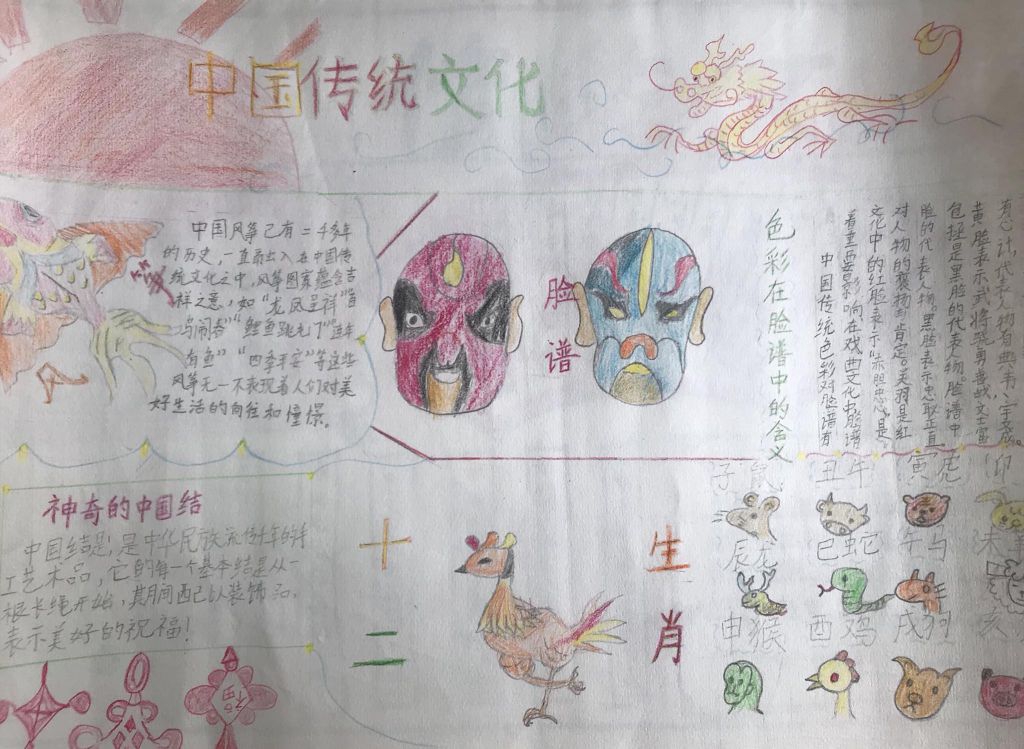 中国传统文化
中国风筝已有二千多年
的历史,一直融入在中国传
统文化之中,风筝图案蕴含吉
祥之意,如“龙凤呈祥”“百
鸟闹春”“鲤鱼跳龙门”“连年
有鱼”“四季平安”等这些
风筝无一不表现着人们对美
好生活的向往和憧憬。
风筝
脸谱
色彩在脸谱中的含义
中国传统色彩对脸谱有
着重要影响在戏曲文化中脸谱
文化中的红脸表示“赤胆忠心”是
对人物的褒扬与肯定。关羽是红
脸的代表人物黑脸表示忠耿正直
包拯是黑脸的代表人物脸谱中
黄脸表示武将骁勇善战文士富
有心计,代表人物有典韦、宇文成
神奇的中国结
中国结是,是中华民族流传千年的手
工艺术品,它的每一个基本结是从一
根长绳开始,其期间配以装饰品,
表示美好的祝福!
福
十二
生肖
子鼠 丑牛 寅虎 卯
辰龙 巳蛇 午马 未羊
申猴 酉鸡 戌狗 亥